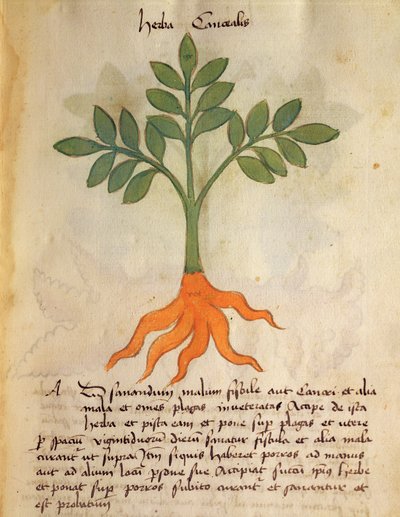 herba Cancealis
A Ad sanandum malum fistule aut Cancri et alia
mala et omes plagas inveteratas Accipe de ista
herba et pista eam et pone sup plagas et vere
p spacium viginti duorum dierum sanatur fistula et alia mala
curantur ut supra Item si quis haberet porros ad manus
aut ad alium locum Accipiat succum ipius herbe
et ponat sup porros subito curantur et sanentur et
est probatum